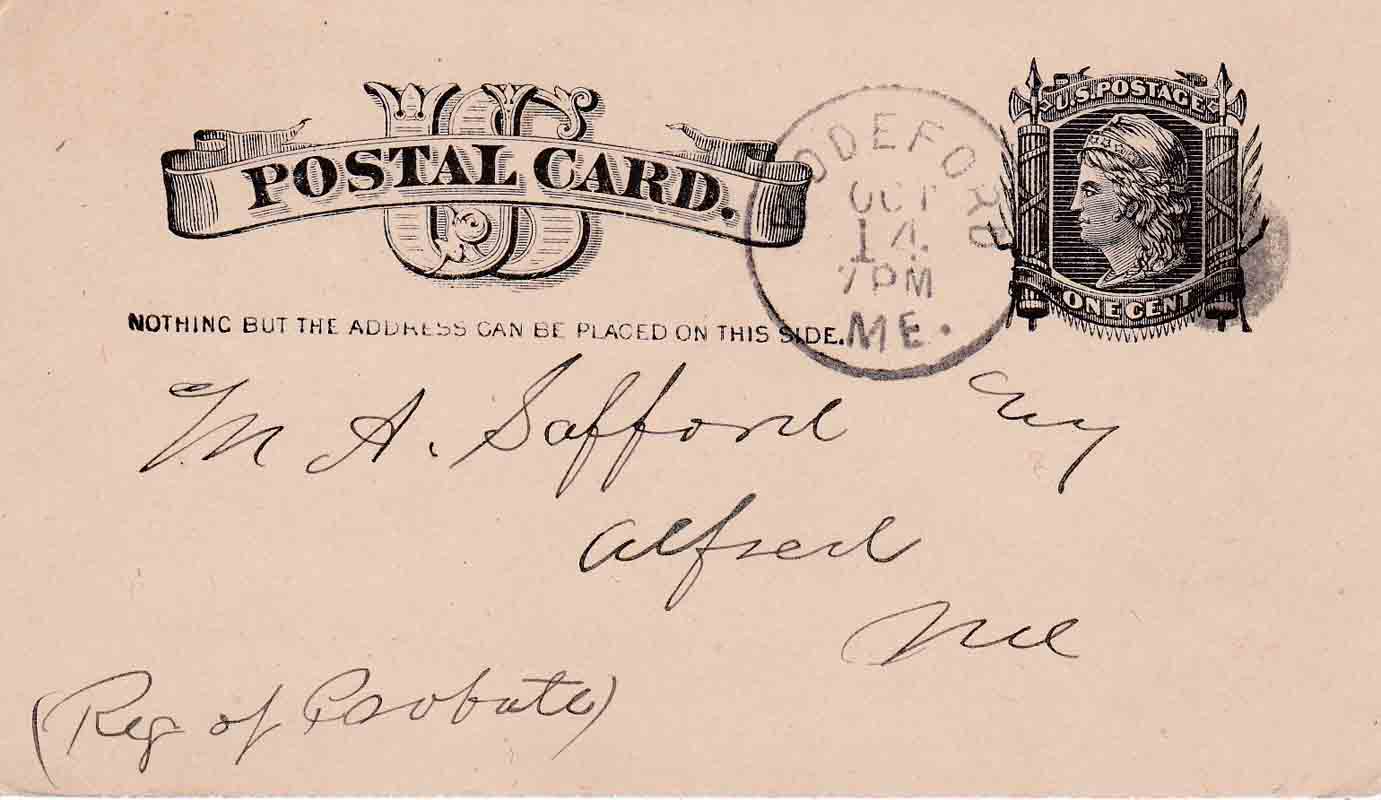 US
POSTAL CARD.
U.S. POSTAGE
ONE CENT
NOTHING BUT THE ADDRESS CAN BE PLACED ON THIS SIDE.
BIDDEFORD
OCT
14
7PM
ME.
M A. Safford Esq
Alfred
Me
(Reg of Probate)